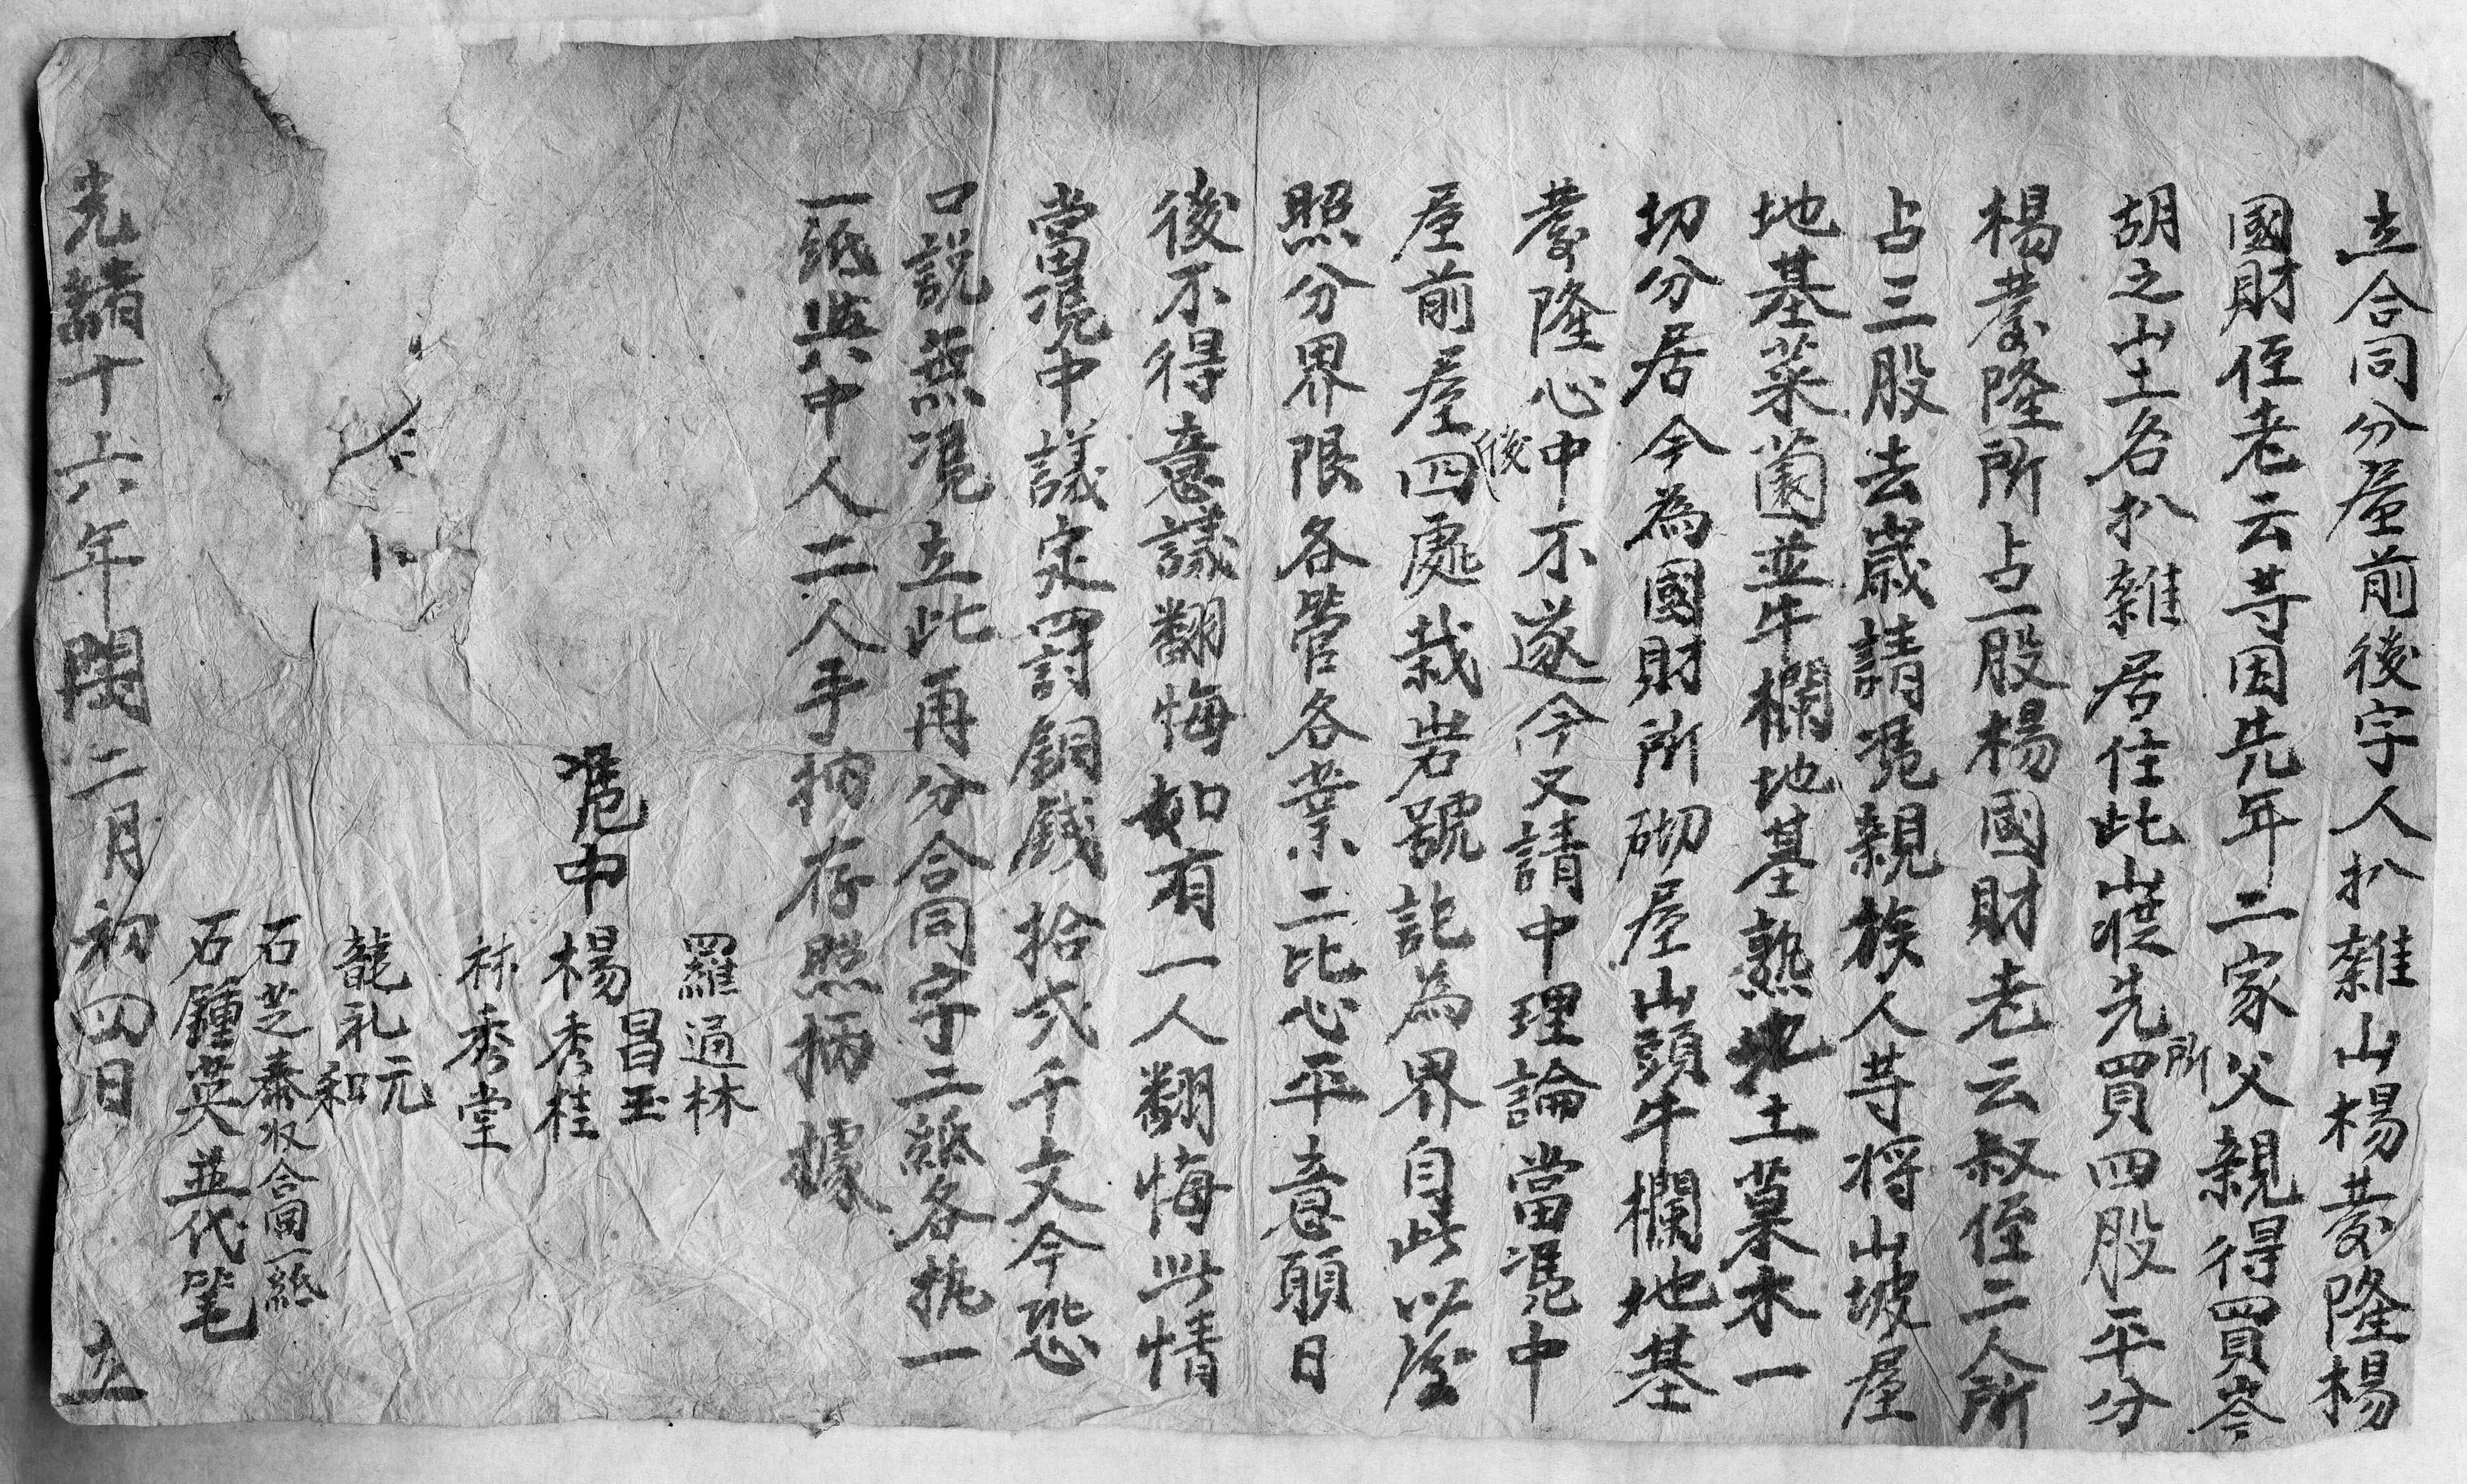 立合同分屋前後字人扒雜山楊㽵隆楊
國財侄老云等因先年二家父親得買岑
胡之山土名扒雜居住此山㽵先所買四股平分
楊㽵隆所占一股楊國財老云叔侄二人所
占三股去歲請凴親族人等将山坡屋
地基菜薗並牛欄地基熟地土墓木一
切分居今為國財所砌屋山頭牛欄地基
㽵隆心中不遂今又請中理論當凴中
屋前屋後四處栽岩號訖為界自此以屋
照分界限各管各業二比心平意願日
後不得意議翻悔如有一人翻悔此情
當凴中議定罰銅錢拾弍千文今恐
口說無凴立此再分合同字二紙各执一
一紙與中人二人手柄存照柄據
羅通林
昌玉
凴中楊秀桂
林秀堂
龍礼元
和
石芝泰收合同一紙
石鍾英並代笔
光緒十六年閏二月初四日 立